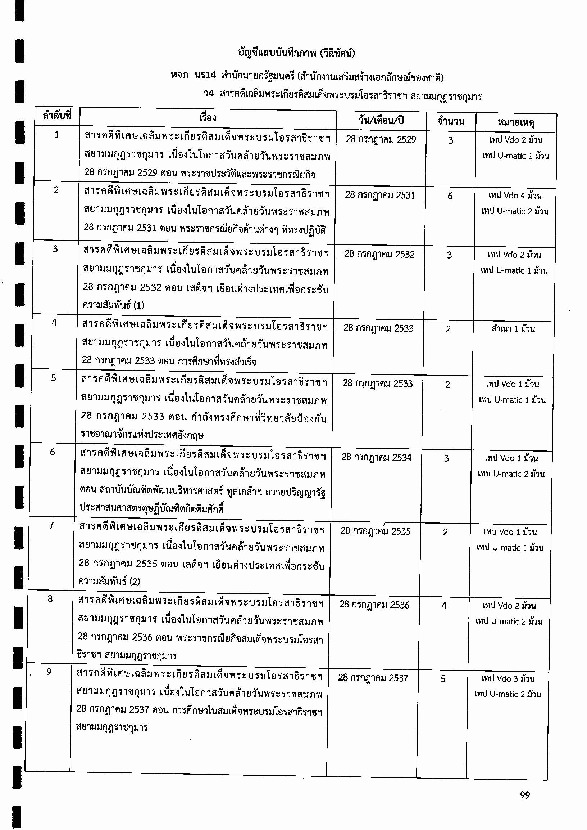 บัญชีแถบบันทึกภาพ (วีดิทัศน์)
หจภ นร14 สำนักนายกรัฐมนตรี (สำนักงานเสริมสร้างเอกลักษณ์ของชาติ)
ว4 สารคดีเฉลิมพระเกียรติสมเด็จพระบรมโอรสาธิราชฯ สยามมกุฎราชกุมาร
ลำดับที่ เรื่อง วัน/เดือน/ปี จำนวน หมายเหตุ
1 สารคดีพิเศษเฉลิมพระเกียรติสมเด็จพระบรมโอรสาธิราชฯ 28 กรกฎาคม 2529 3 เทป Vdo 2 ม้วน
สยามมกุฎราชกุมาร เนื่องในโอกาสวันคล้ายวันพระราชสมภพ เทป U-matic 1 ม้วน
28 กรกฎาคม 2529 ตอน พระราชประวัติและพระราชกรณียกิจ
2 สารคดีพิเศษเฉลิมพระเกียรติสมเด็จพระบรมโอรสาธิราชฯ 28 กรกฎาคม 2531 6 เทป Vdo 4 ม้วน
สยามมกุฎราชกุมาร เนื่องในโอกาสวันคล้ายวันพระราชสมภพ เทป U-matic 2 ม้วน
28 กรกฎาคม 2531 ตอน พระราชกรณียกิจด้านต่างๆ ที่ทรงปฏิบัติ
3 สารคดีพิเศษเฉลิมพระเกียรติสมเด็จพระบรมโอรสาธิราชฯ 28 กรกฎาคม 2532 3 เทป Vdo 2 ม้วน
สยามมกุฎราชกุมาร เนื่องในโอกาสวันคล้ายวันพระราชสมภพ เทป U-matic 1 ม้วน
28 กรกฎาคม 2532 ตอน เสด็จฯ เยือนต่างประเทศเพื่อกระชับ
ความสัมพันธ์ (1)
4 สารคดีพิเศษเฉลิมพระเกียรติสมเด็จพระบรมโอรสาธิราชฯ 28 กรกฎาคม 2533 2 สำเนา 1 ม้วน
สยามมกุฎราชกุมาร เนื่องในโอกาสวันคล้ายวันพระราชสมภพ
28 กรกฎาคม 2533 ตอน การศึกษาที่ทรงสำเร็จ
5 สารคดีพิเศษเฉลิมพระเกียรติสมเด็จพระบรมโอรสาธิราชฯ 28 กรกฎาคม 2533 2 เทป Vdo 1 ม้วน
สยามมกุฎราชกุมาร เนื่องในโอกาสวันคล้ายวันพระราชสมภพ เทป U-matic 1 ม้วน
28 กรกฎาคม 2533 ตอน กำลังทรงศึกษาที่วิทยาลัยป้องกัน
ราชอาณาจักรแห่งประเทศอังกฤษ
6 สารคดีพิเศษเฉลิมพระเกียรติสมเด็จพระบรมโอรสาธิราชฯ 28 กรกฎาคม 2534 3 เทป Vdo 1 ม้วน
สยามมกุฎราชกุมาร เนื่องในโอกาสวันคล้ายวันพระราชสมภพ เทป U-matic 2 ม้วน
ตอน สถาบันบัณฑิตพัฒนบริหารศาสตร์ ทูลเกล้าฯ ถวายปริญญารัฐ
ประศาสนศาสตรดุษฎีบัณฑิตกิตติมศักดิ์
7 สารคดีพิเศษเฉลิมพระเกียรติสมเด็จพระบรมโอรสาธิราชฯ 28 กรกฎาคม 2535 2 เทป Vdo 1 ม้วน
สยามมกุฎราชกุมาร เนื่องในโอกาสวันคล้ายวันพระราชสมภพ เทป U-matic 1 ม้วน
28 กรกฎาคม 2535 ตอน เสด็จฯ เยือนต่างประเทศเพื่อกระชับ
ความสัมพันธ์ (2)
8 สารคดีพิเศษเฉลิมพระเกียรติสมเด็จพระบรมโอรสาธิราชฯ 28 กรกฎาคม 2536 4 เทป Vdo 2 ม้วน
สยามมกุฎราชกุมาร เนื่องในโอกาสวันคล้ายวันพระราชสมภพ เทป U-matic 2 ม้วน
28 กรกฎาคม 2536 ตอน พระราชกรณียกิจสมเด็จพระบรมโอรสา
ธิราชฯ สยามมกุฎราชกุมาร
9 สารคดีพิเศษเฉลิมพระเกียรติสมเด็จพระบรมโอรสาธิราชฯ 28 กรกฎาคม 2537 5 เทป Vdo 3 ม้วน
สยามมกุฎราชกุมาร เนื่องในโอกาสวันคล้ายวันพระราชสมภพ เทป U-matic 2 ม้วน
28 กรกฎาคม 2537 ตอน การศึกษาในสมเด็จพระบรมโอรสาธิราชฯ
สยามมกุฎราชกุมาร
99